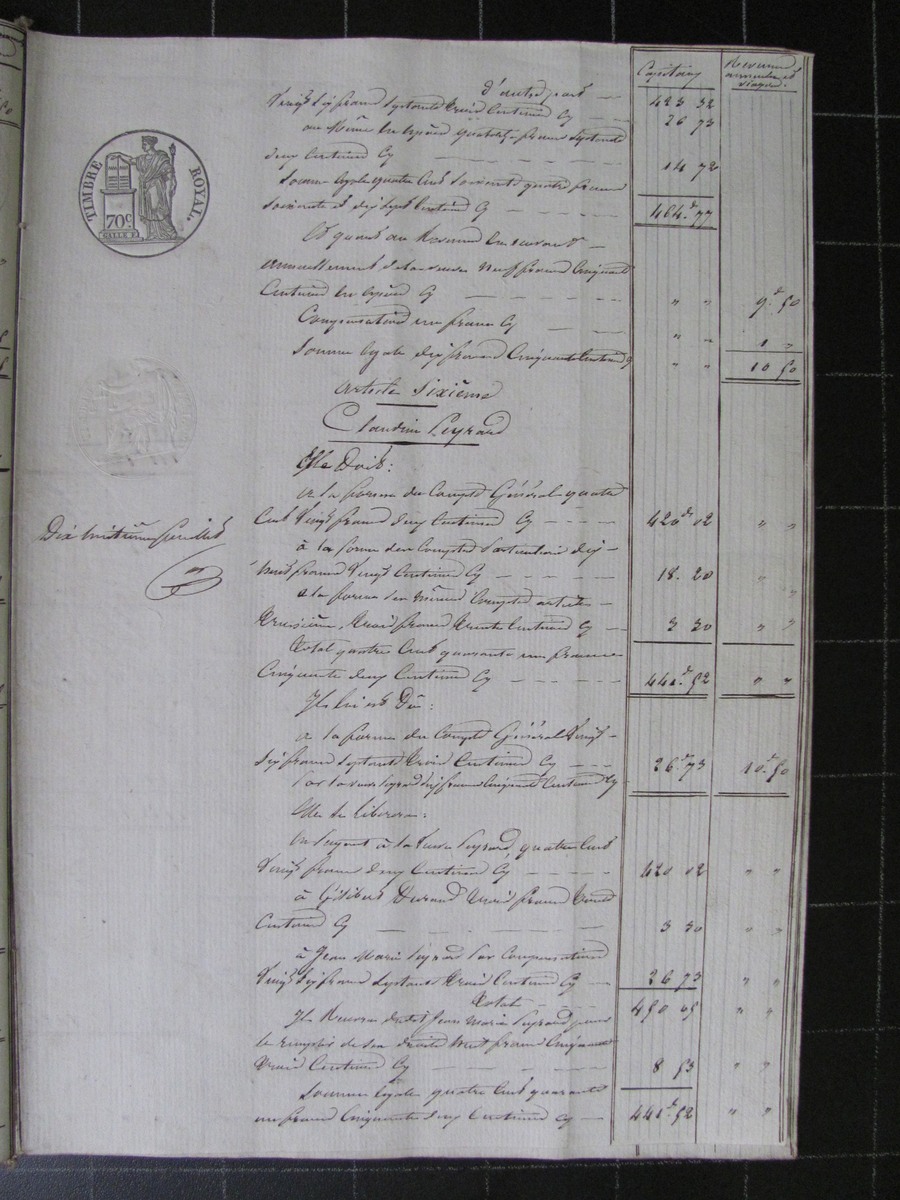 TIMBRE ROYAL.
70c
Capitaux
Revenus annuels et viagers.
d'autre part — 423 32
Vingt six francs septante trois centimes Cy — 26 73
au même en espèces quatorze francs septante
deux centimes Cy — 14 72
Somme égale quatre cent soixante quatre francs
soixante et dix sept centimes Cy — 464.f 77
Et quant au revenu en recevant
annuellement de la veuve neuf francs cinquante
centimes en espèces Cy — " " 9.f 50
Compensation un franc Cy — " " 1 "
Somme égale dix francs cinquante centimes Cy " " 10 50
Article Sixième
Claudine Peyrard
Elle Doit:
a la forme du Compte Général quatre
cent vingt francs deux centimes Cy — 420.f 02 " "
à la forme des Comptes particuliers dix
huit francs vingt centimes Cy — 18. 20 "
a la forme des mêmes Comptes article "
troisième, trois francs trente centimes Cy — 3 30 " "
Total quatre cent quarante un francs
cinquante deux centimes Cy — 441.f 52 " "
Il lui est Dû:
a la forme du Compte Général Vingt
six francs septante trois centimes Cy — 26.f 73 10.f 50
par la veuve Peyrard dix francs cinquante centimes Cy
Elle se libèrera:
en payant à la Veuve Peyrard, quatre cent
vingt francs deux centimes Cy — 420 02 " "
à Gilibert Durand trois francs trente
centimes Cy — 3 30 " "
à Jean Marie Peyrard par compensation
vingt six francs septante trois centimes Cy — 26 73 " "
Total — 450 05 " "
Il recevra dudit Jean Marie Peyrard pour
le remplir de ses droits huit francs cinquante
trois centimes Cy — 8 53 " "
Somme égale quatre cent quarante
un francs cinquante deux centimes Cy — 441.f 52 " "